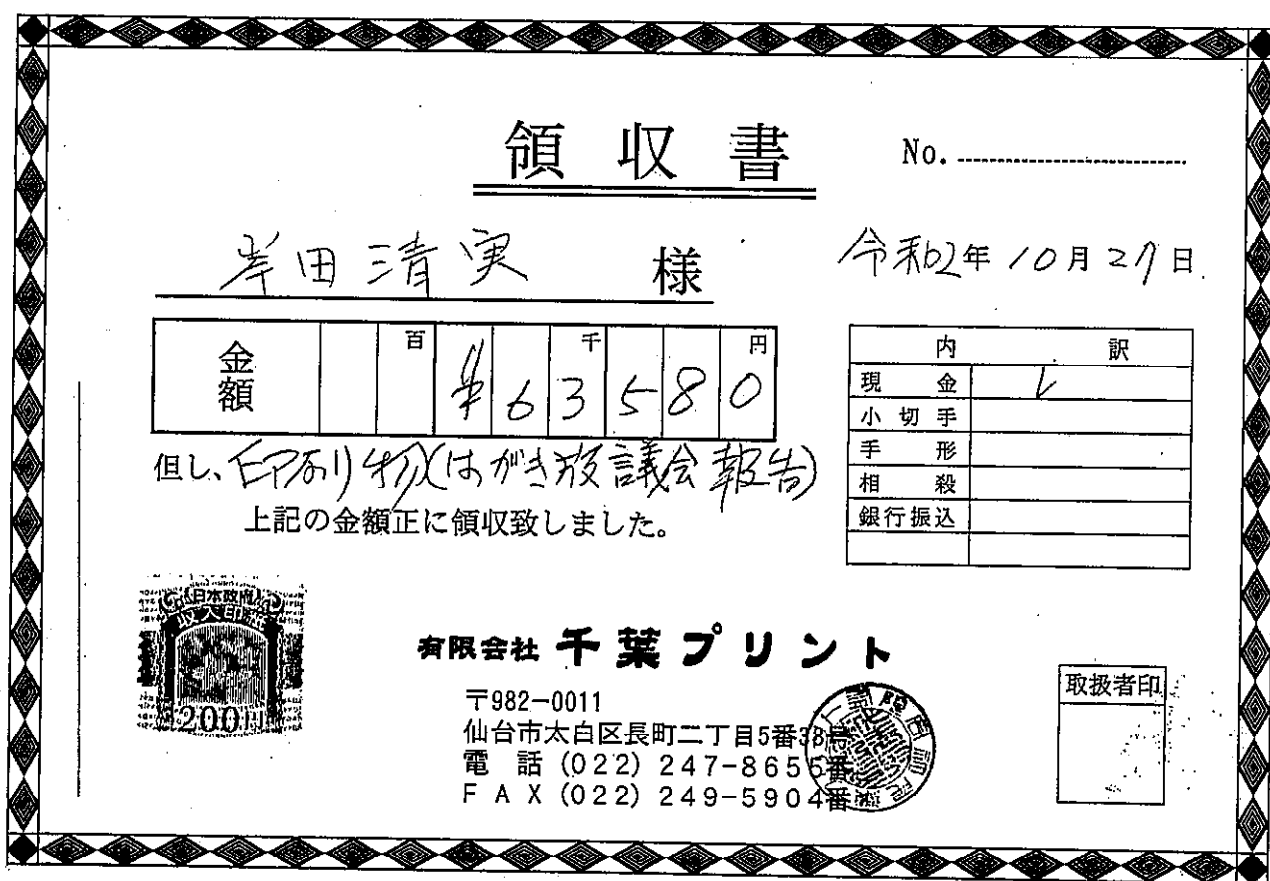 領収書
No.
岸田清実 様
令和02年10月27日
金額 百 千 円
¥63580
内訳
現金 レ
小切手
手形
相殺
銀行振込
但し、印刷物(はがき版議会報告)
上記の金額正に領収致しました。
日本政府
収入印紙
200円
有限会社 千葉プリント
〒982-0011
仙台市太白区長町二丁目5番38号
電話(022)247-8655番
FAX(022)249-5904番
取扱者印